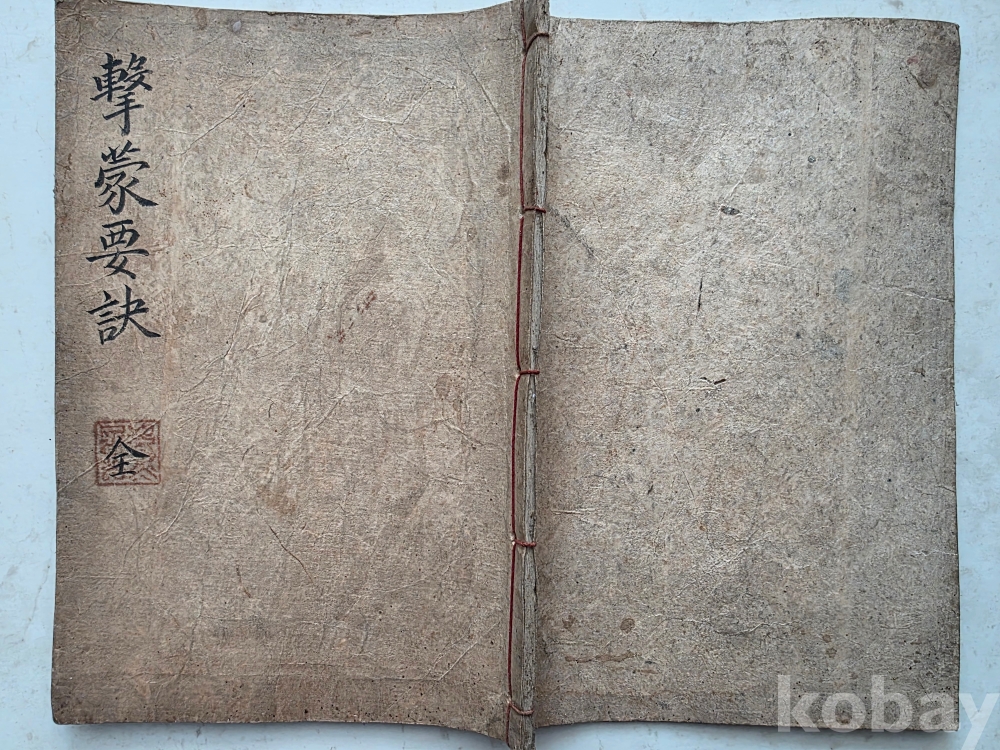 擊蒙要訣
全
kobay